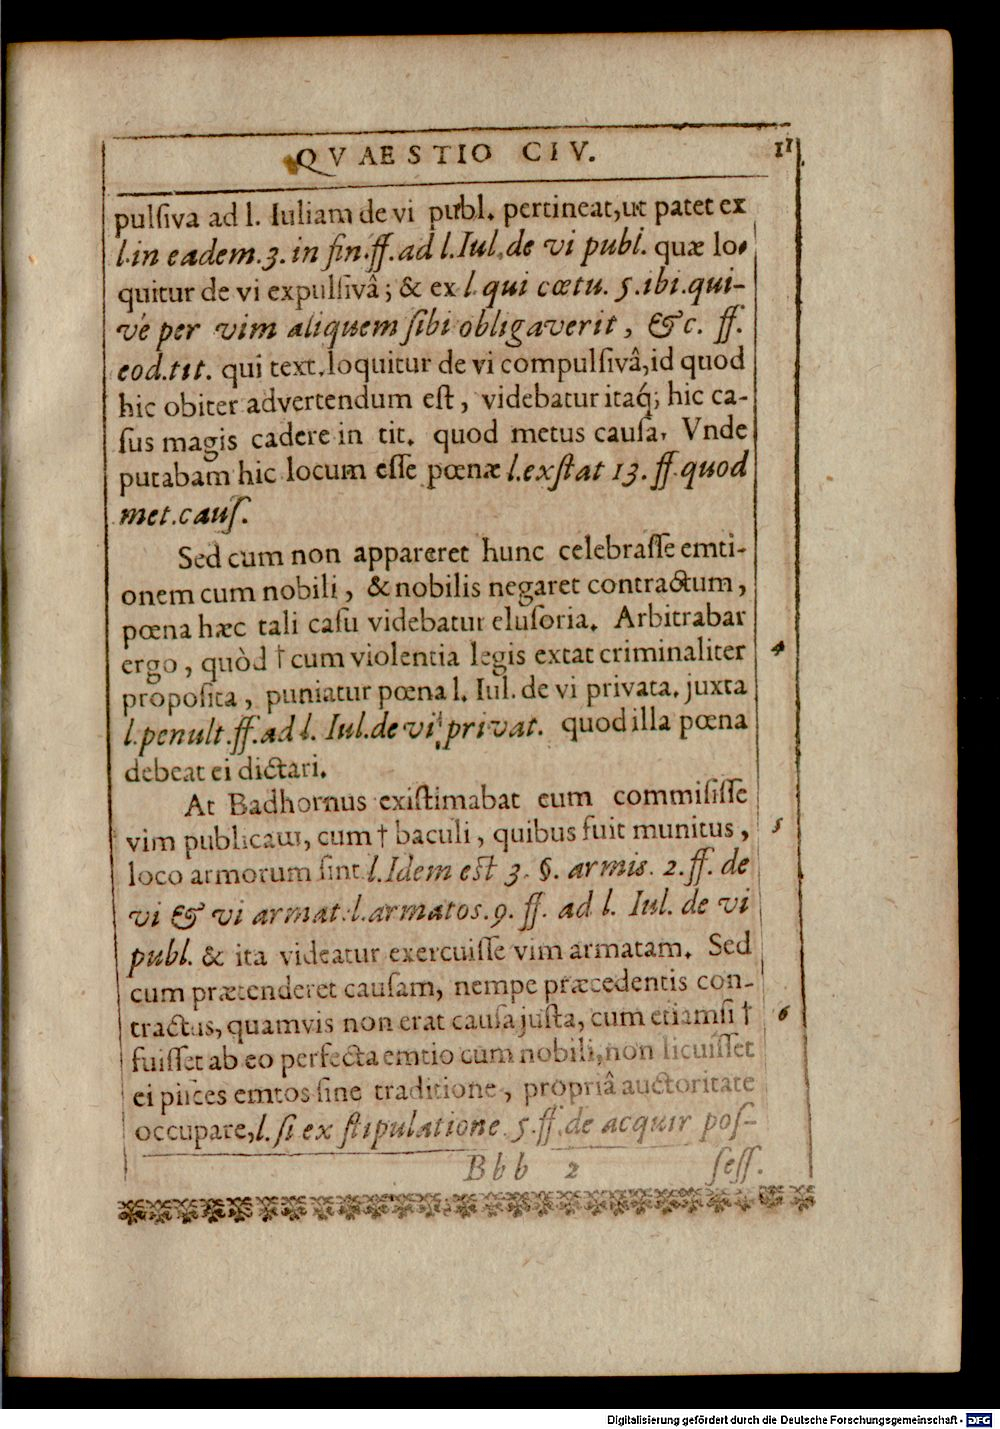 QVAESTIO CIV. 11
pulsiva ad l. Iuliam de vi publ. pertineat, ut patet ex
l. in eadem. 3. in fin. ff. ad l. Iul. de vi publ. quæ lo-
quitur de vi expulsivâ; & ex l. qui cœtu. 5. ibi. qui-
vè per vim aliquem sibi obligaverit, &c. ff.
eod. tit. qui text. loquitur de vi compulsivâ, id quod
hic obiter advertendum est, videbatur itaq; hic ca-
sus magis cadere in tit. quod metus causa. Vnde
putabam hic locum esse pœnæ l. exstat 13. ff. quod
met. caus.
Sed cum non appareret hunc celebrasse emti-
onem cum nobili, & nobilis negaret contractum,
pœna hæc tali casu videbatur elusoria. Arbitrabar
ergo, quòd † cum violentia legis extat criminaliter 4
proposita, puniatur pœna l. Iul. de vi privata. juxta
l. penult. ff. ad l. Iul. de vi privat. quod illa pœna
debeat ei dictari.
At Badhornus existimabat eum commisisse
vim publicam, cum † baculi, quibus fuit munitus, 5
loco armorum sint l. Idem est 3. §. armis. 2. ff. de
vi & vi armat. l. armatos. 9. ff. ad l. Iul. de vi
publ. & ita videatur exercuisse vim armatam. Sed
cum prætenderet causam, nempe præcedentis con-
tractus, quamvis non erat causa justa, cum etiamsi † 6
fuisset ab eo perfecta emtio cum nobili, non licuisset
ei pisces emtos sine traditione, propriâ auctoritate
occupare, l. si ex stipulatione. 5. ff. de acquir pos-
Bbb 2 sess.
Digitalisierung gefördert durch die Deutsche Forschungsgemeinschaft - DFG